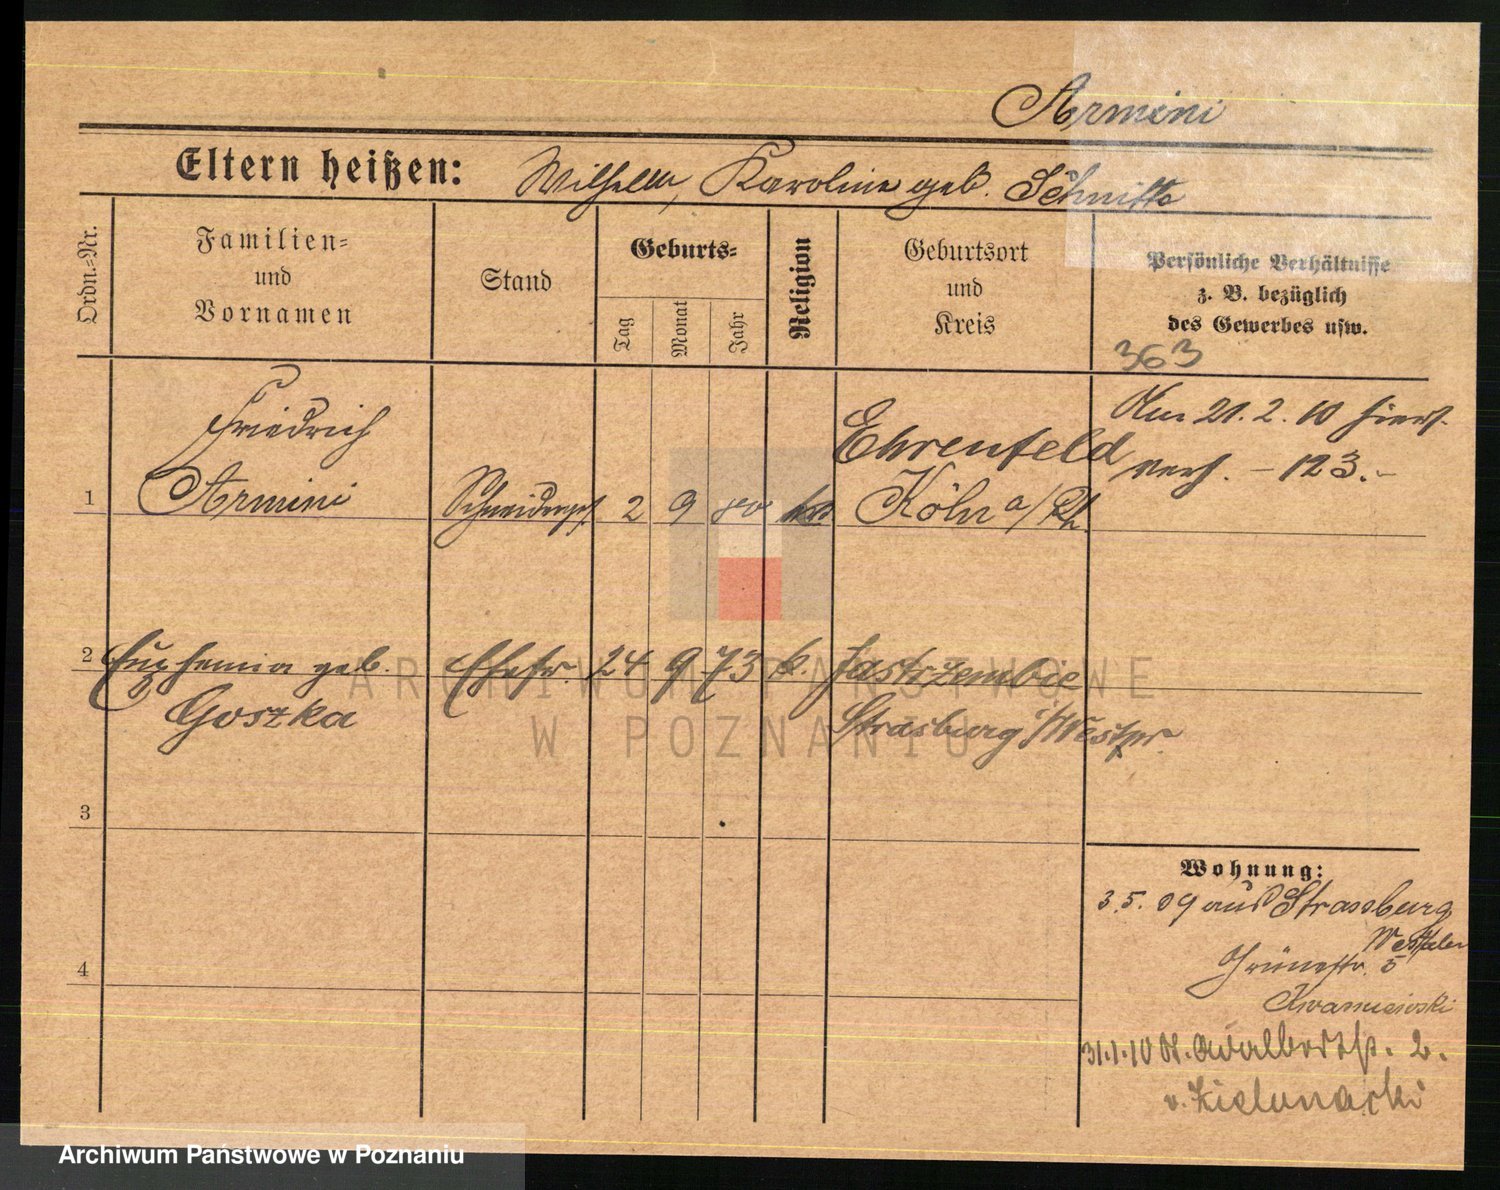 Armini
Eltern heißen: Wilhelm, Karoline geb. Schnitt
Ordn.=Nr.
Familien=
und
Vornamen
Stand
Geburts=
Tag
Monat
Jahr
Religion
Geburtsort
und
Kreis
Persönliche Verhältnisse
z. B. bezüglich
des Gewerbes usw.
363
Friedrich
Armini
1 Schneiderges. 2 9 80
Ehrenfeld
Köln a/Rh.
Am 21.2.10 hiers.
verh. - 123.-
2 Euphemia geb.
Goszka
Ehefr. 24 9 73 k. Jastrzembie
Strasburg /Westpr.
3
4
Wohnung:
3.5.09 aus Strassburg
Grünestr. 5
31.1.10 St. Adalbertstr. 2.
v. Zielonacki
ARCHIWUM PAŃSTWOWE
W POZNANIU
Archiwum Państwowe w Poznaniu